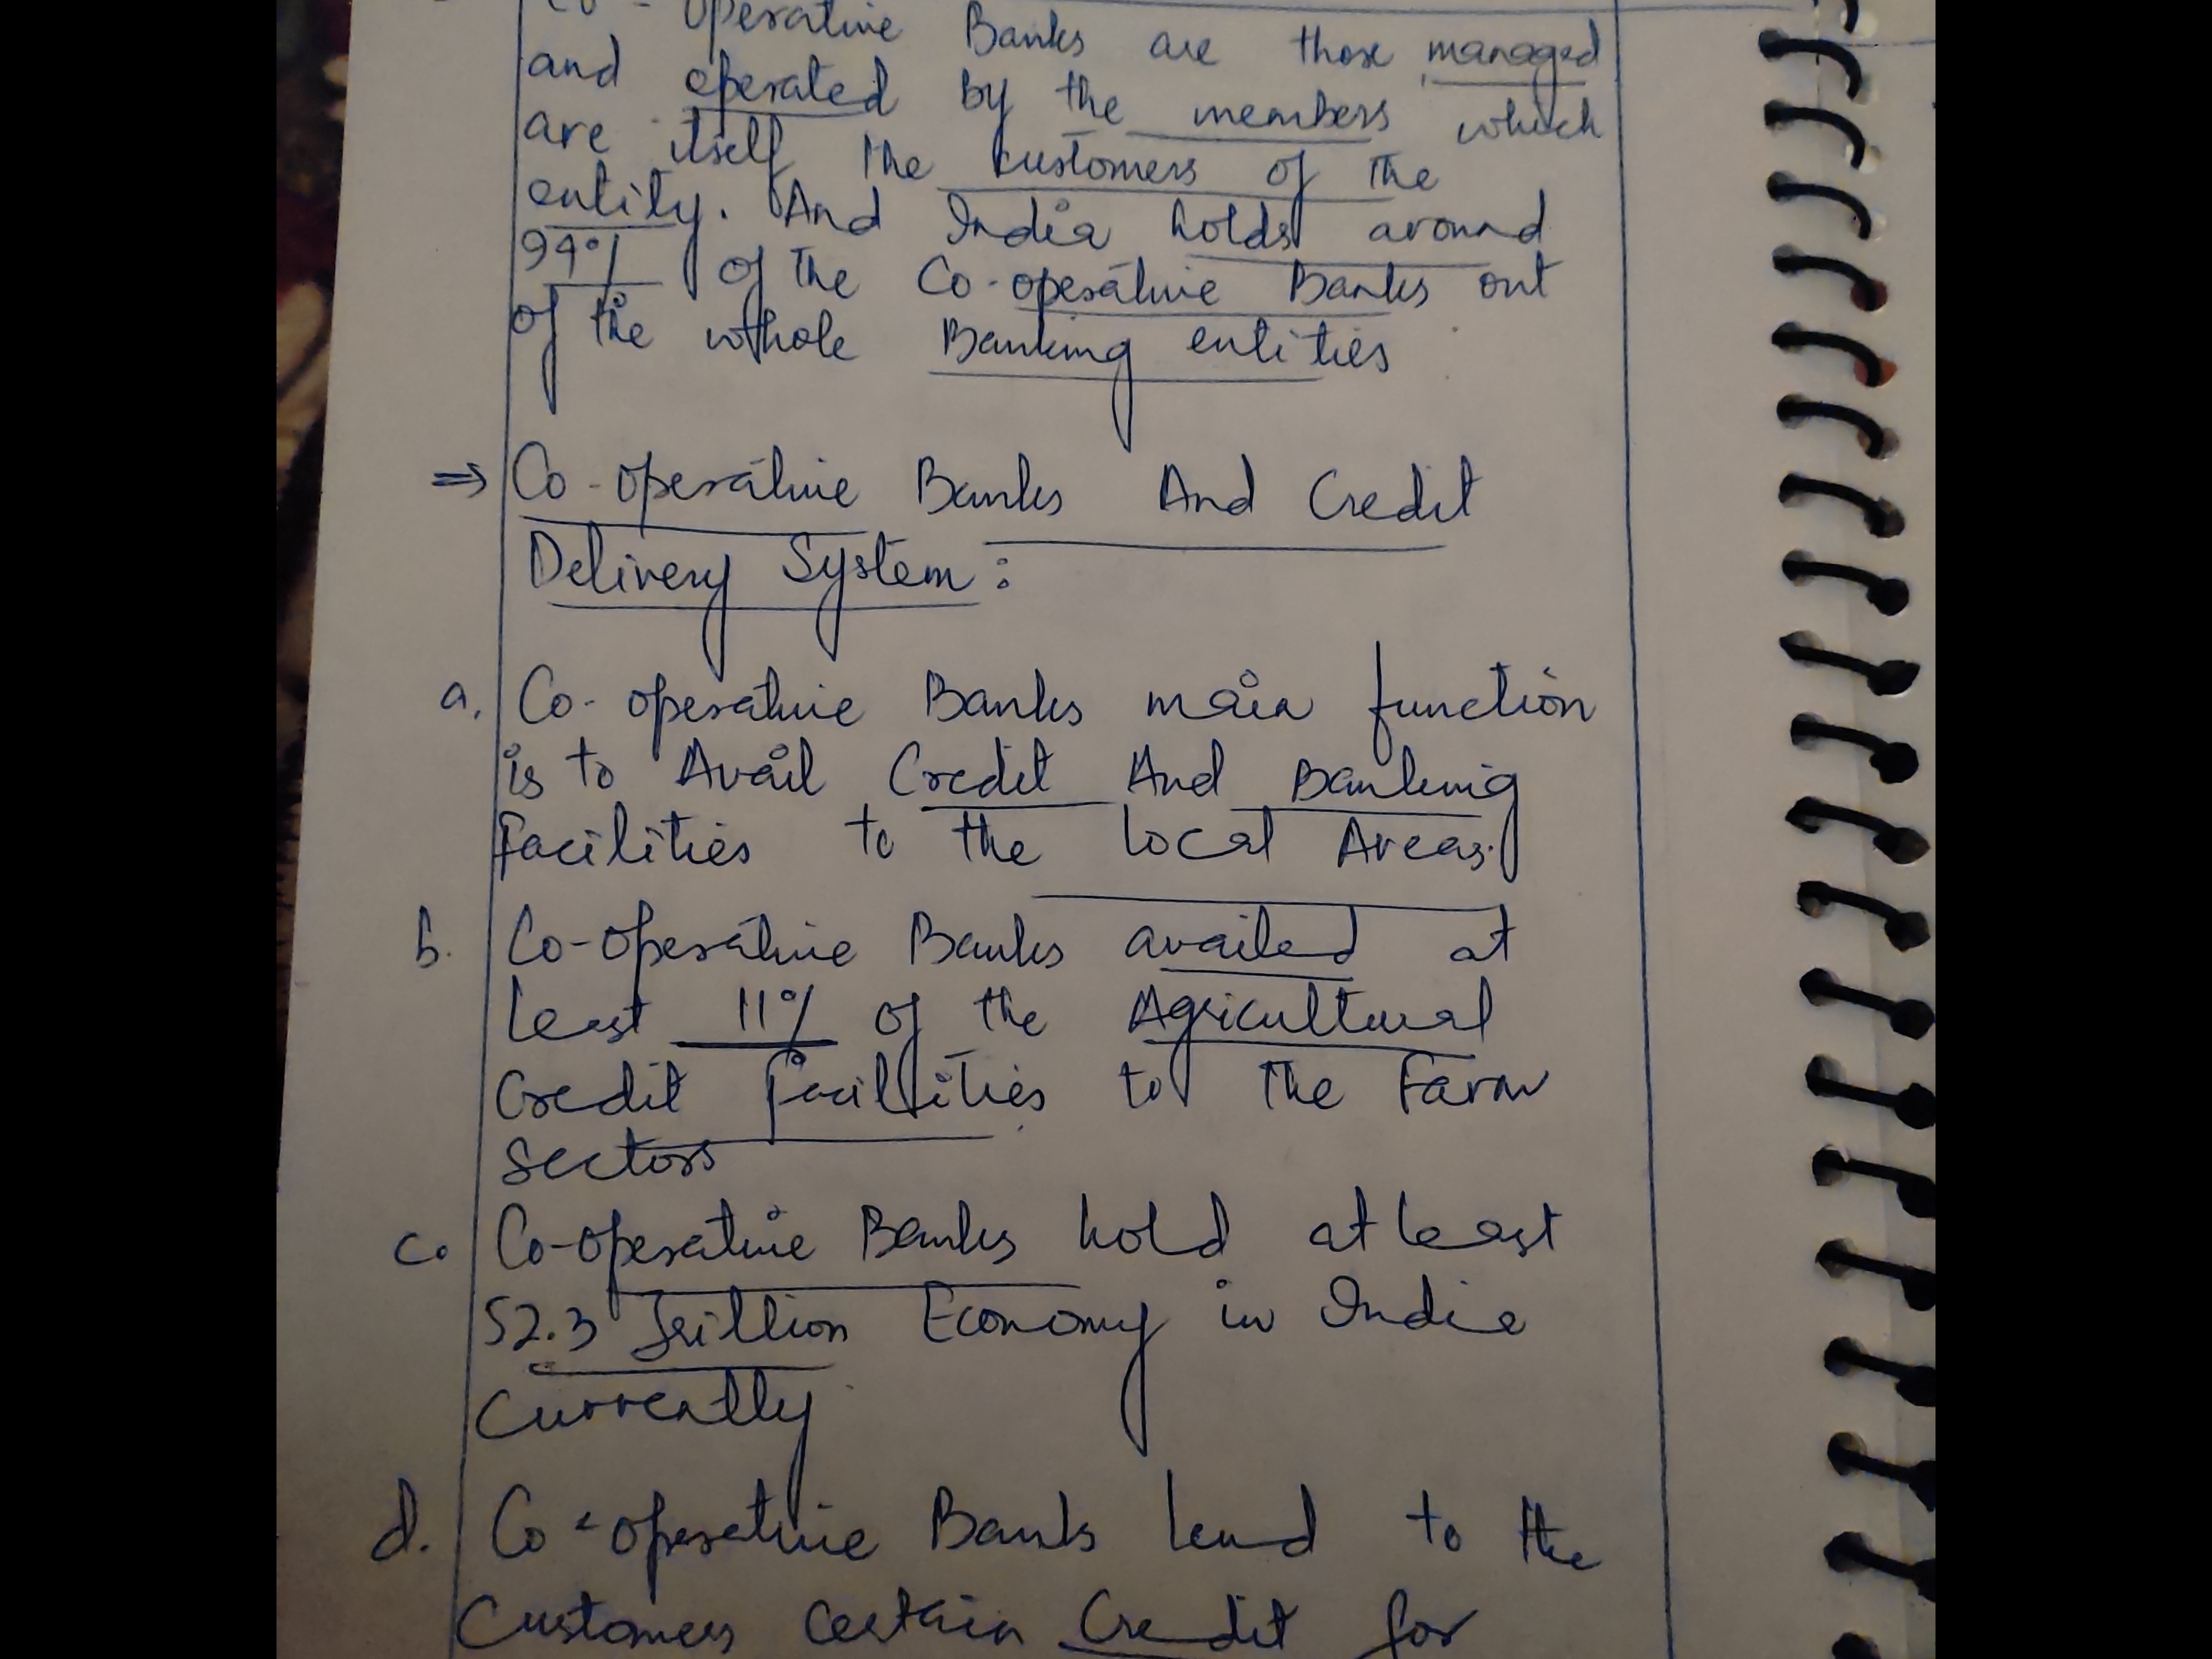 Co-operative Banks are those managed
and operated by the members which
are itself the customers of the
entity. And India holds around
94% of the Co-operative Banks out
of the whole Banking entities
⇒ Co-operative Banks And Credit
Delivery System:
a. Co-operative Banks main function
is to Avail Credit And Banking
Facilities to the local Areas.
b. Co-operative Banks availed at
least 11% of the Agricultural
Credit facilities to the Farm
Sectors
c. Co-operative Banks hold at least
52.3 Trillion Economy in India
Currently
d. Co-operative Banks lend to the
Customers certain Credit for